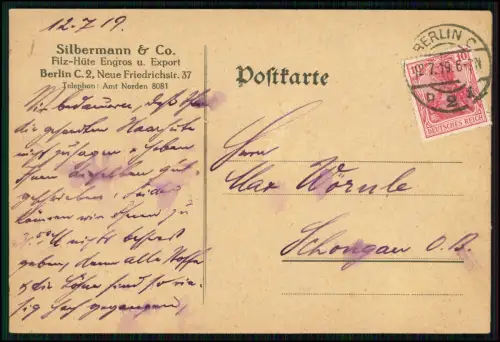 12.7.19.
Silbermann & Co.
Filz-Hüte Engros u. Export
Berlin C. 2, Neue Friedrichstr. 37
Telephon: Amt Norden 8081
Postkarte
BERLIN C
12.7.19.6-7N
2
DEUTSCHES REICH
10
Wir bedauern, daß Ihnen
die gesandten Haarhüte
nicht zusagen u. haben
Ihnen dieselben gut-
geschrieben. Leider
können wir Ihnen zu
nichts
geben, denn alle Stoffe
u. die Löhne sind so rie-
sig hoch gegangen,
Herrn
Max Wörnle
Schongau O.B.